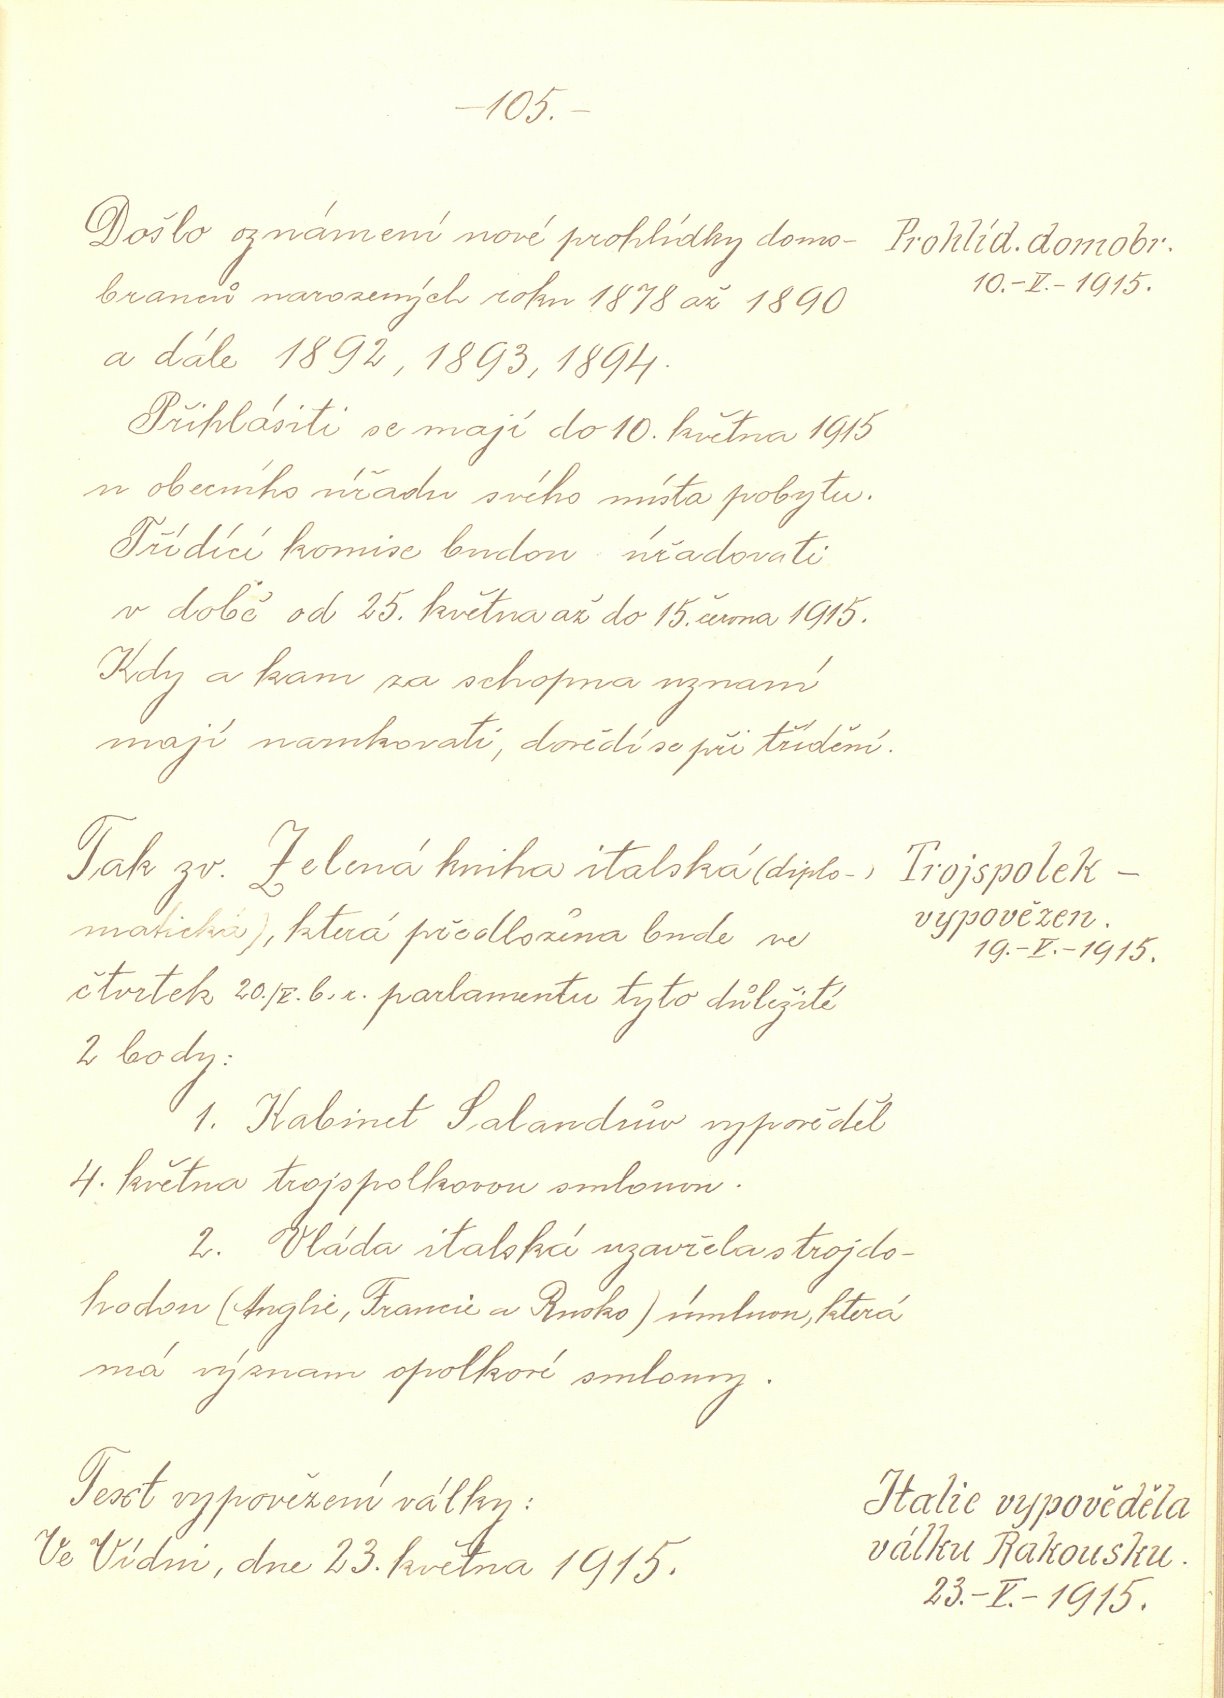 —105.—
Došlo oznámení nové prohlídky domo-
branců narozených roku 1878 až 1890
a dále 1892, 1893, 1894.
Přihlásiti se mají do 10. května 1915
u obecního úřadu svého místa pobytu.
Třídící komise budou úřadovati
v době od 25. května až do 15. června 1915.
Kdy a kam za schopna uznaní
mají narukovati, dovědí se při třídění.
Prohlíd. domobr.
10.-V.-1915.
Tak zv. Zelená kniha italská (diplo-
matická), která předložena bude ve
čtvrtek 20./V. b. r. parlamentu tyto důležité
2 body:
1. Kabinet Salandrův vypověděl
4. května trojspolkovou smlouvu.
2. Vláda italská uzavřela s trojdo-
hodou (Anglie, Francie a Rusko) úmluvu, která
má význam spolkové smlouvy.
Trojspolek -
vypovězen.
19.-V.-1915.
Text vypovězení války:
Ve Vídni, dne 23. května 1915.
Italie vypověděla
válku Rakousku.
23.-V.-1915.